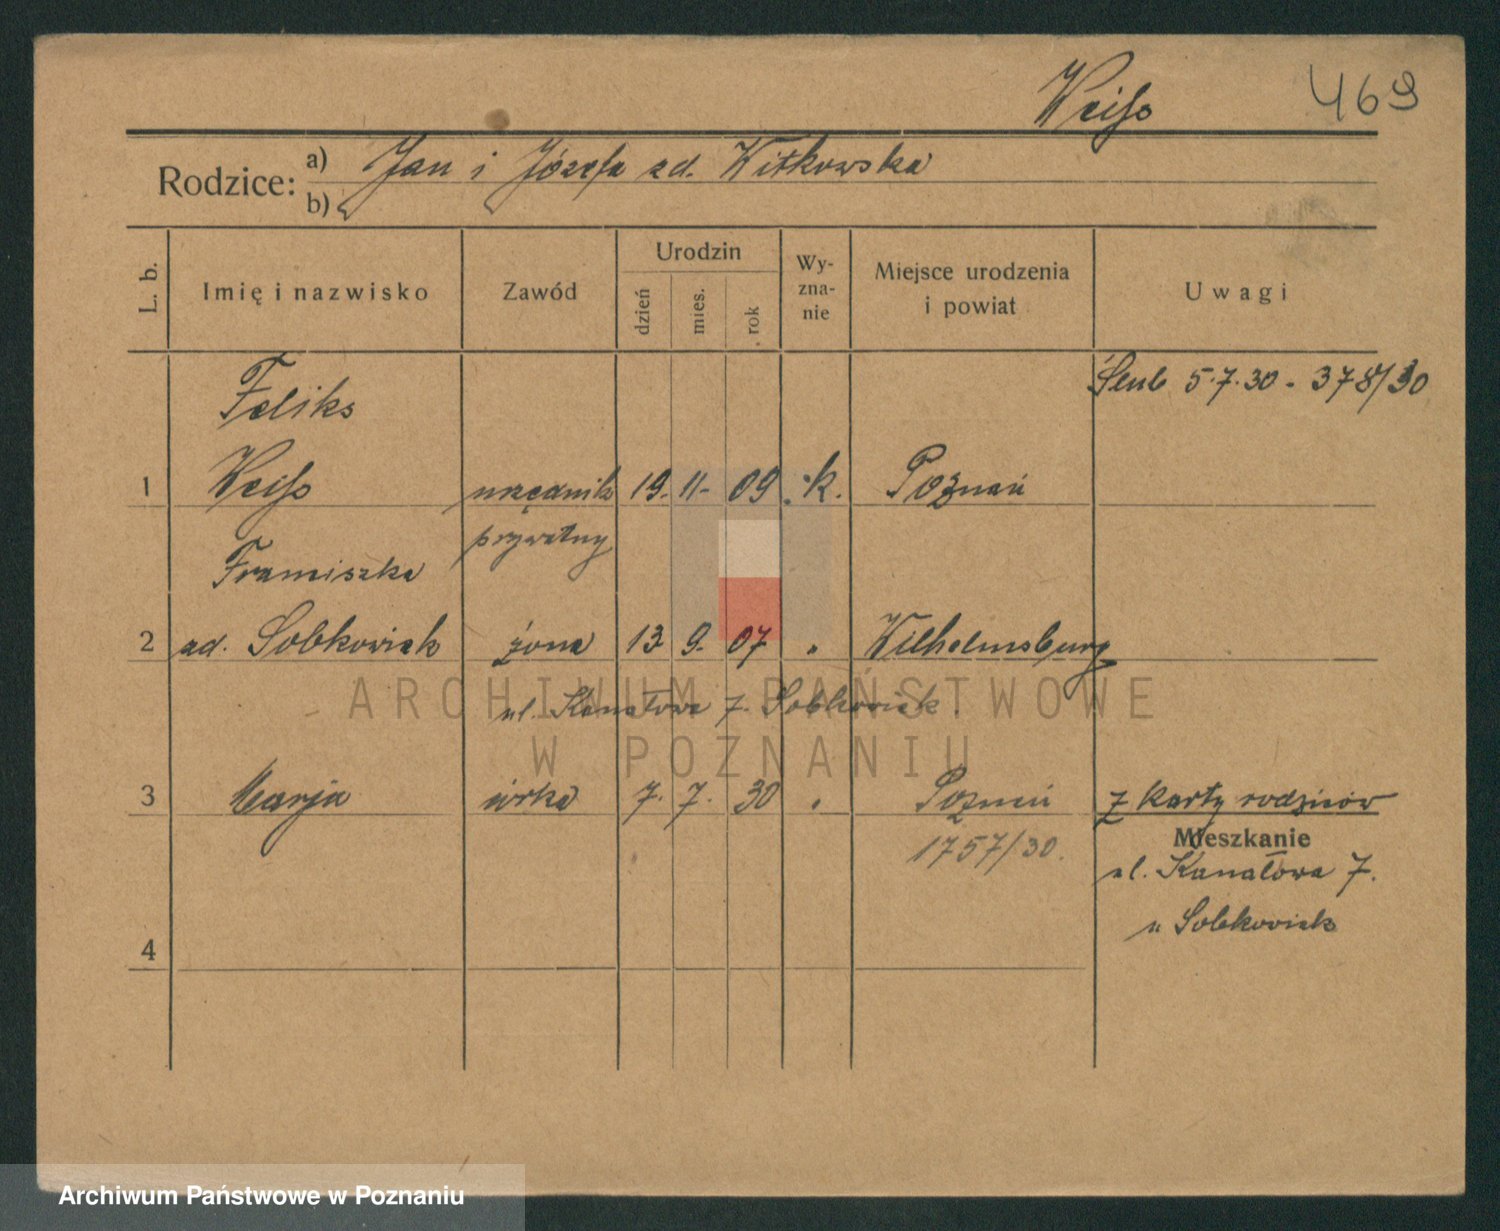 Weiss 469
Rodzice: a) Jan i Józefa zd. Witkowska
b)
L. b. Imię i nazwisko Zawód Urodzin dzień mies. rok Wy-zna-nie Miejsce urodzenia i powiat Uwagi
Feliks Ślub 5.7.30 - 378/30
1 Weiss urzędnik 19. 11- 09 k. Poznań
prywatny
Franciszka
2 zd. Sobkowiak żona 13 9. 07 " Wilhelmsburg
ul. Kanałowa 7. Sobkowiak.
ARCHIWUM PAŃSTWOWE
W POZNANIU
3 Marja córka 7. 7. 30 " Poznań z karty rodziców
1757/30. Mieszkanie
ul. Kanałowa 7.
u Sobkowiak
4
Archiwum Państwowe w Poznaniu